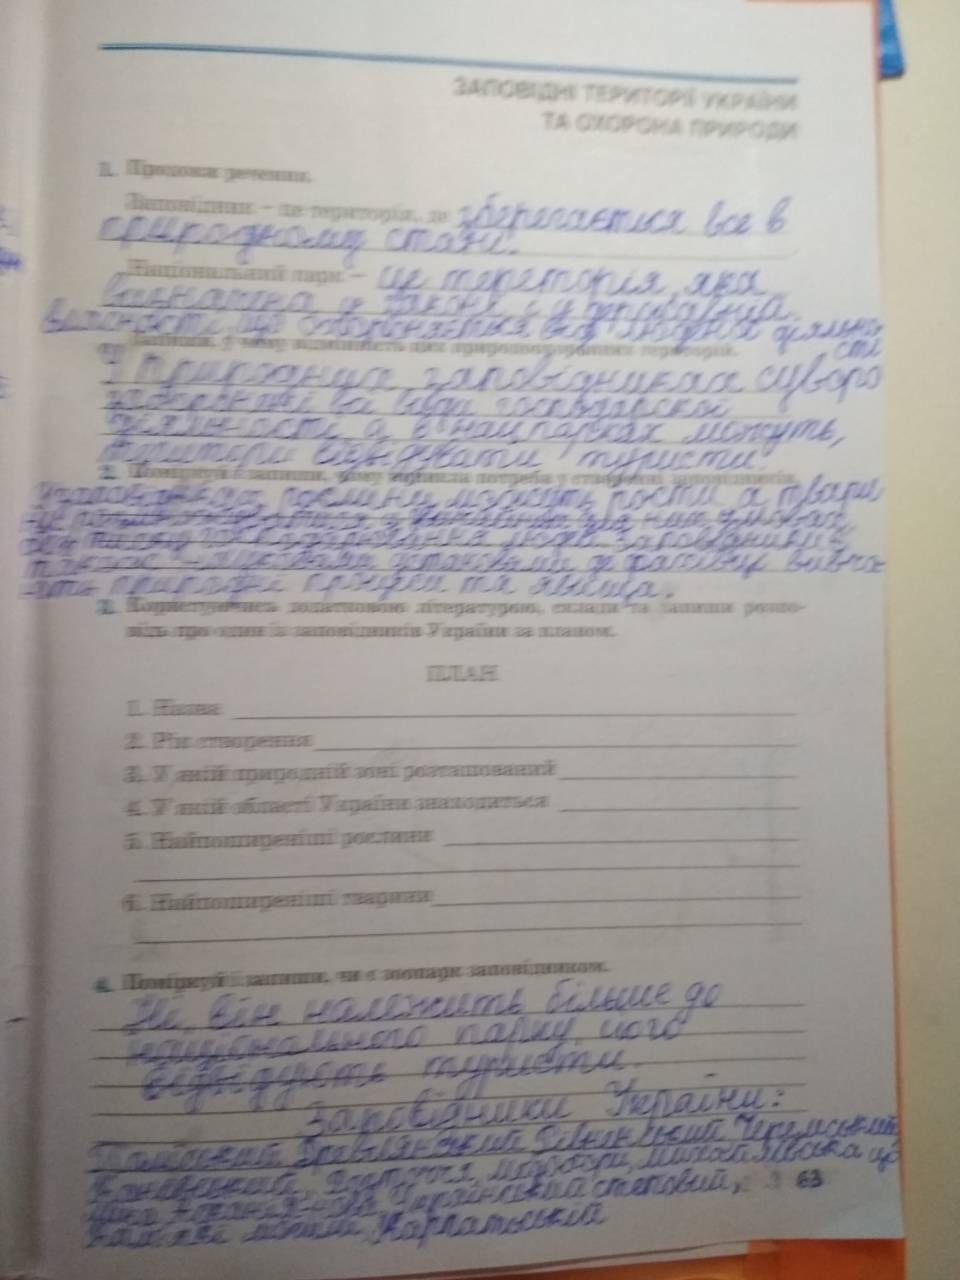 ЗАПОВІДНІ ТЕРИТОРІЇ УКРАЇНИ
ТА ОХОРОНА ПРИРОДИ
1. Продовж речення.
Заповідник – це територія, де зберегається все в
природному стані.
Національний парк – це тереторія, яка
визначена у законі і у державній
власності, що охороняється від людної діяльно
сті
Запиши, у чому відмінність цих природоохоронних територій.
У природних заповідниках суворо
заборонені всі види господарської
діяльності а в нац парках можуть,
відвідвати туристи.
2. Поміркуй і запиши, чому виникла потреба у створенні заповідників.
У заповідниках рослини можуть рости а твари
них умовах,
господарювання люди заповідники є
також науковими установами де фахівці вивча
ють природні процеси та явища.
3. Користуючись додатковою літературою, склади та запиши розпо-
відь про один із заповідників України за планом.
ПЛАН
1. Назва
2. Рік створення
3. У якій природній зоні розташований
4. У якій області України знаходиться
5. Найпоширеніші рослини
6. Найпоширеніші тварини
4. Поміркуй і запиши, чи є зоопарк заповідником.
Ні, він належить більше до
національного парку, його
відвідують туристи.
Заповідники України:
Поліський Древлянський Рівненський Черемський
Канівський, Розточчя, медобори, михайлівська ці
лина Асканія-Нова Український степовий,
кам'яні могили, Карпатський
63